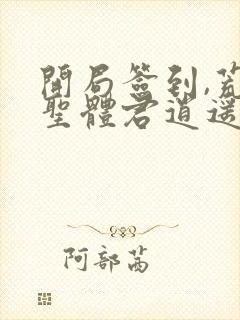 開局簽到,荒
聖體君逍遥
阿部茜